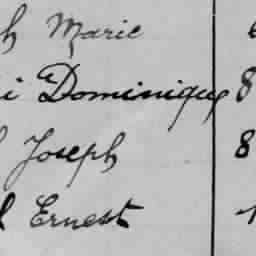 h Marie
i Dominique 8
Joseph 8
l Ernest